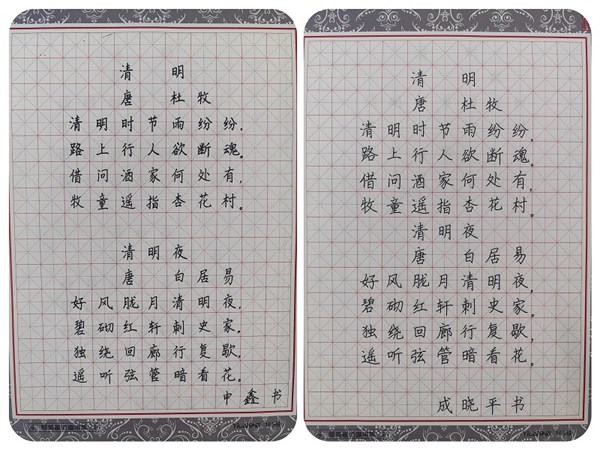 清 明
唐 杜牧
清明时节雨纷纷.
路上行人欲断魂.
借问酒家何处有.
牧童遥指杏花村.
清明夜
唐 白居易
好风胧月清明夜.
碧砌红轩刺史家.
独绕回廊行复歇.
遥听弦管暗看花.
申鑫书
清 明
唐 杜牧
清明时节雨纷纷.
路上行人欲断魂.
借问酒家何处有.
牧童遥指杏花村.
清明夜
唐 白居易
好风胧月清明夜.
碧砌红轩刺史家.
独绕回廊行复歇.
遥听弦管暗看花.
成晓平书